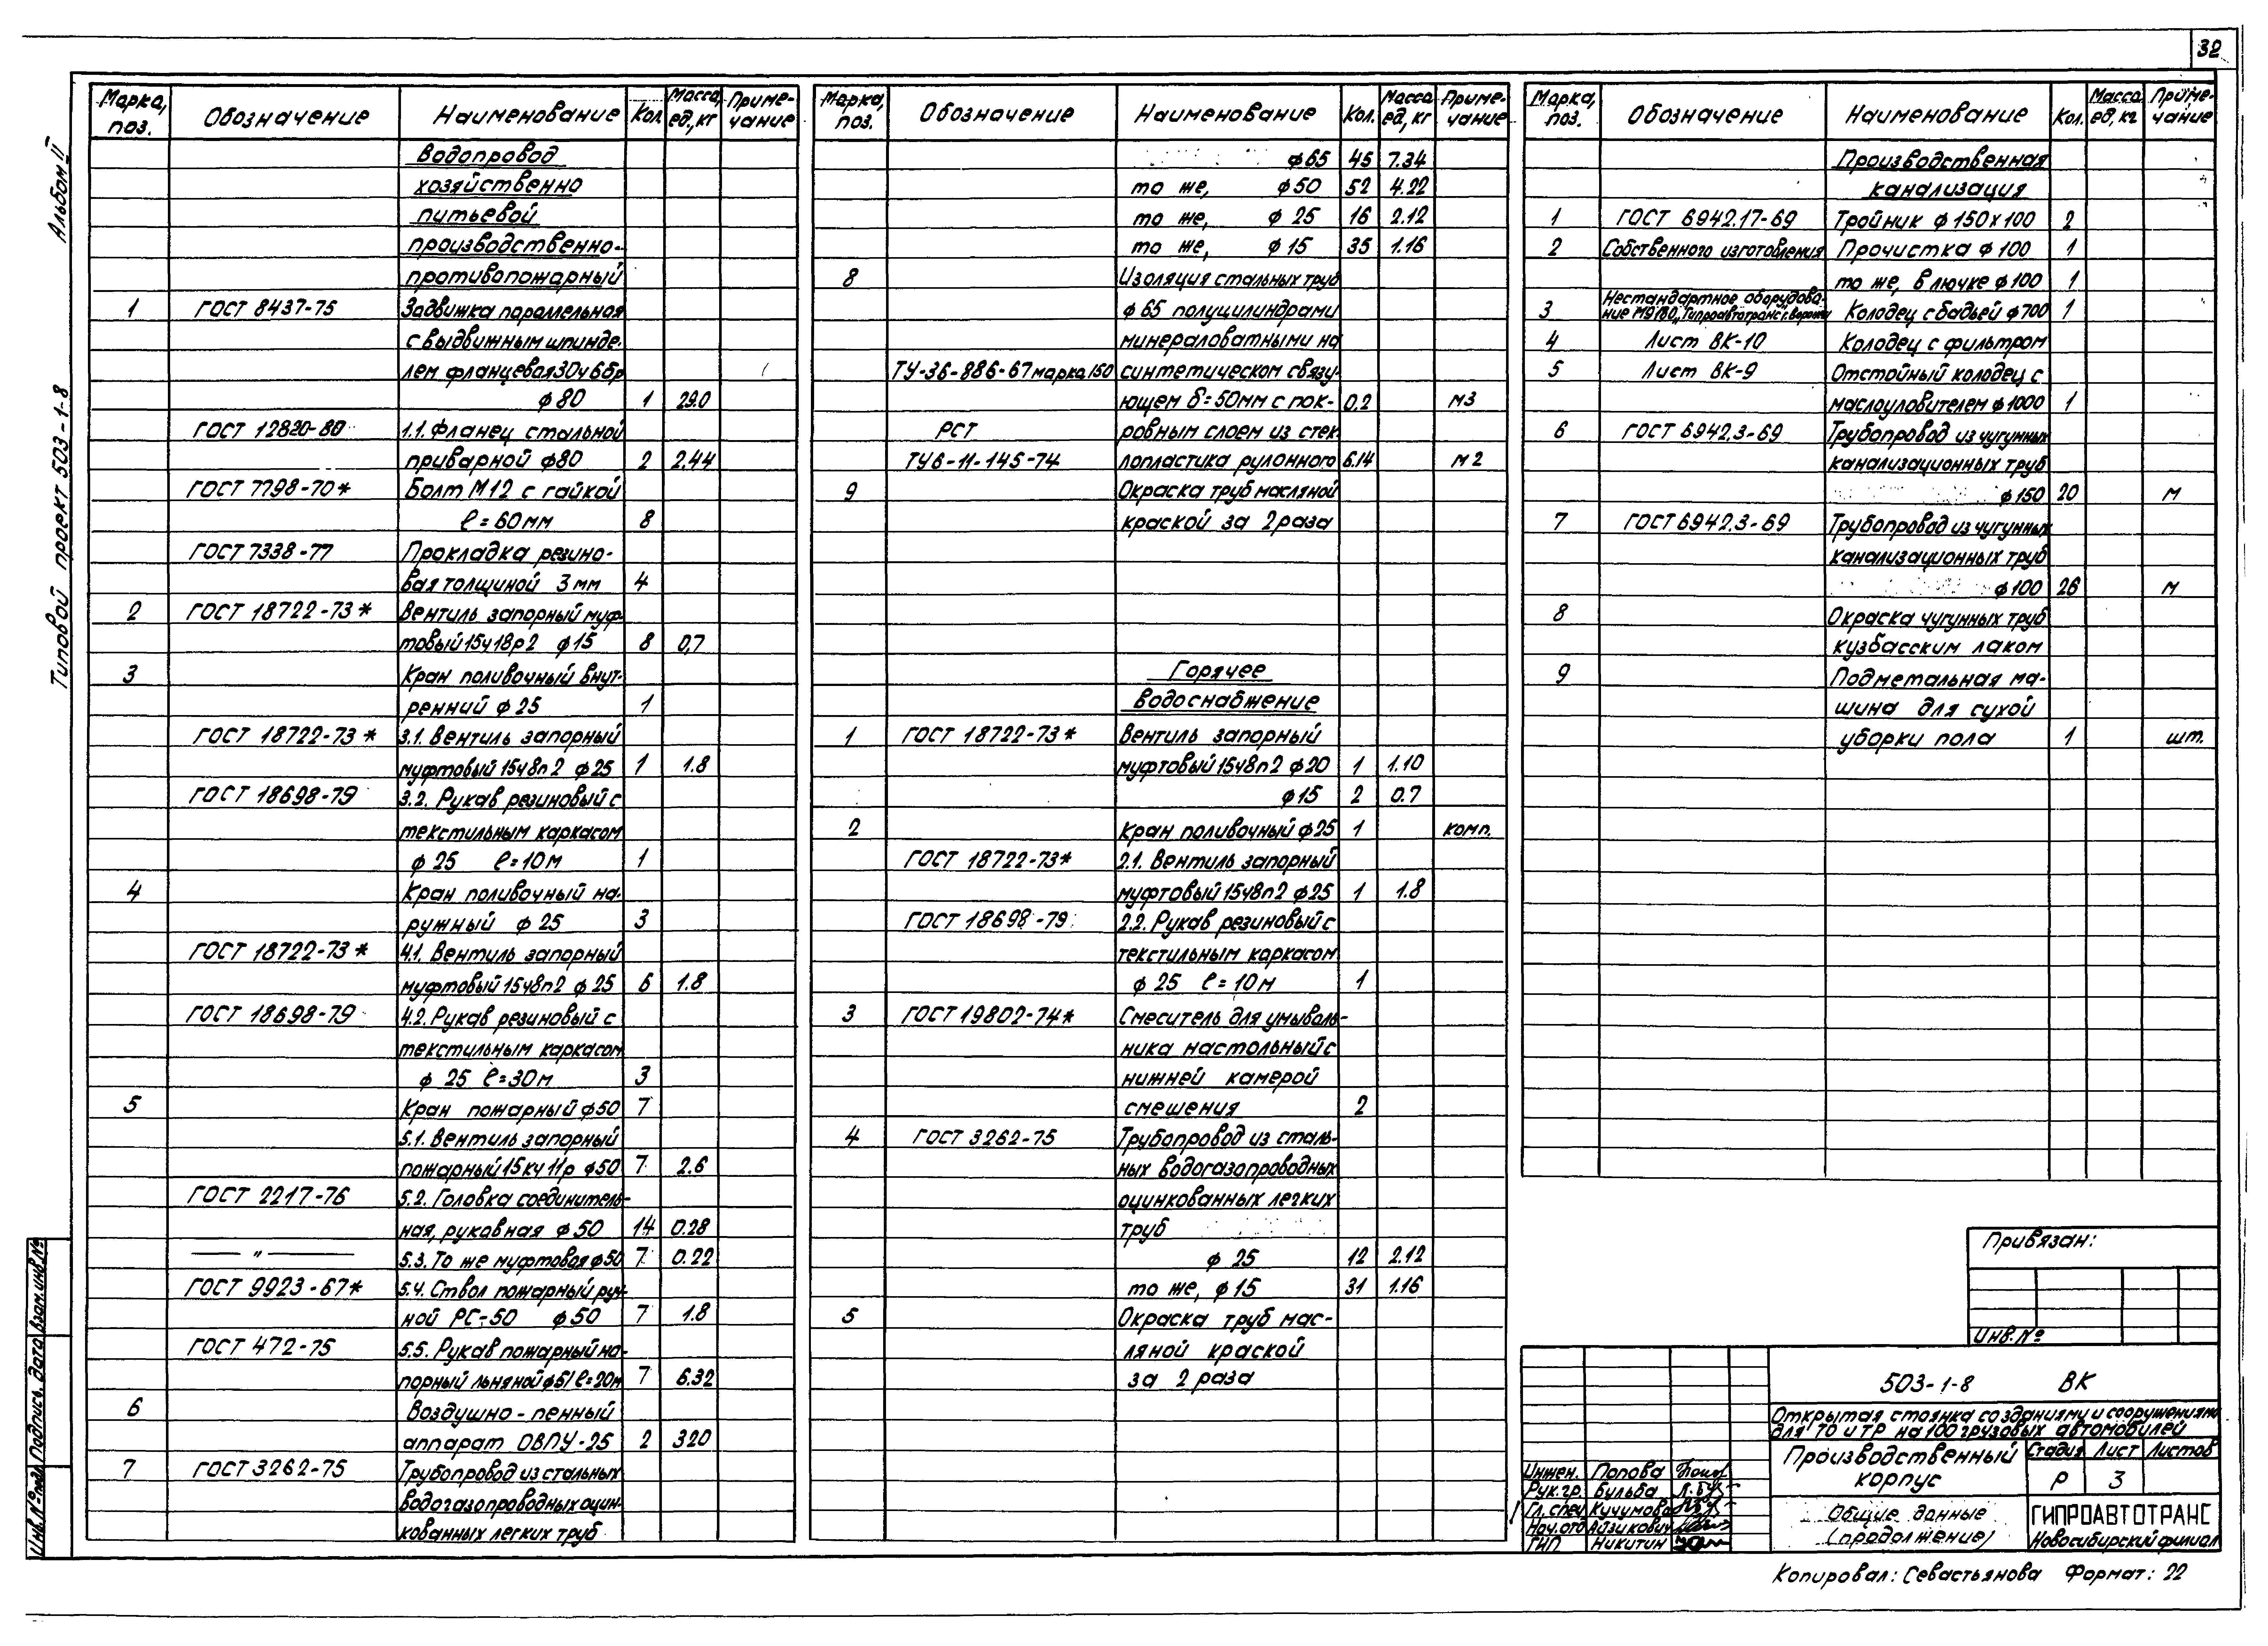 32
Альбом II
Типовой проект 503-1-8
Марка, поз. Обозначение Наименование Кол. Масса ед., кг Приме-чание
Водопровод
хозяйственно
питьевой
производственно-
противопожарный
1 ГОСТ 8437-75 Задвижка параллельная
с выдвижным шпинде-
лем фланцевая 30ч6бр
ф80 1 29.0
ГОСТ 12820-80 1.1. Фланец стальной
приварной ф80 2 2.44
ГОСТ 7798-70* Болт М12 с гайкой
ℓ=60мм 8
ГОСТ 7338-77 Прокладка резино-
вая толщиной 3мм 4
2 ГОСТ 18722-73* Вентиль запорный муф-
товый 15ч18р2 ф15 8 0,7
3 Кран поливочный внут-
ренний ф25 1
ГОСТ 18722-73* 3.1. Вентиль запорный
муфтовый 15ч8п2 ф25 1 1.8
ГОСТ 18698-79 3.2. Рукав резиновый с
текстильным каркасом
ф25 ℓ=10м 1
4 Кран поливочный на-
ружный ф25 3
ГОСТ 18722-73* 4.1. Вентиль запорный
муфтовый 15ч8п2 ф25 6 1.8
ГОСТ 18698-79 4.2. Рукав резиновый с
текстильным каркасом
ф25 ℓ=30м 3
5 Кран пожарный ф50 7
5.1. Вентиль запорный
пожарный 15кч11р ф50 7 2.6
ГОСТ 2217-76 5.2. Головка соединитель-
ная, рукавная ф50 14 0.28
— " — 5.3. То же муфтовая ф50 7 0.22
ГОСТ 9923-67* 5.4. Ствол пожарный руч-
ной РС-50 ф50 7 1.8
ГОСТ 472-75 5.5. Рукав пожарный на-
порный льняной ф51 ℓ=20м 7 6.32
6 Воздушно-пенный
аппарат ОВПУ-25 2 320
7 ГОСТ 3262-75 Трубопровод из стальных
водогазопроводных оцин-
кованных легких труб
Марка, поз. Обозначение Наименование Кол. Масса ед., кг Приме-чание
ф65 45 7.34
то же, ф50 52 4.22
то же, ф25 16 2.12
то же, ф15 35 1.16
8 Изоляция стальных труб
ф65 полуцилиндрами
минераловатными на
ТУ-36-886-67 марка 150 синтетическом связу-
ющем δ=50мм с пок- 0.2 м3
РСТ ровным слоем из стек-
ТУ6-11-145-74 лопластика рулонного 6.14 м2
9 Окраска труб масляной
краской за 2 раза
Горячее
водоснабжение
1 ГОСТ 18722-73* Вентиль запорный
муфтовый 15ч8п2 ф20 1 1.10
ф15 2 0.7
2 Кран поливочный ф25 1 комп.
ГОСТ 18722-73* 2.1. Вентиль запорный
муфтовый 15ч8п2 ф25 1 1.8
ГОСТ 18698-79 2.2. Рукав резиновый с
текстильным каркасом
ф25 ℓ=10м 1
3 ГОСТ 19802-74* Смеситель для умываль-
ника настольный с
нижней камерой
смешения 2
4 ГОСТ 3262-75 Трубопровод из сталь-
ных водогазопроводных
оцинкованных легких
труб
ф25 12 2.12
то же, ф15 31 1.16
5 Окраска труб мас-
ляной краской
за 2 раза
Марка, поз. Обозначение Наименование Кол. Масса ед, кг Приме-чание
Производственная
канализация
1 ГОСТ 6942.17-69 Тройник ф150х100 2
2 Собственного изготовления Прочистка ф100 1
то же, в лючке ф100 1
Нестандартное оборудова-
3 ние М9180 „Гипроавтотранс г. Воронеж Колодец с бадьей ф700 1
4 Лист ВК-10 Колодец с фильтром
5 Лист ВК-9 Отстойный колодец с
маслоуловителем ф1000 1
6 ГОСТ 6942.3-69 Трубопровод из чугунных
канализационных труб
ф150 20 м
7 ГОСТ 6942.3-69 Трубопровод из чугунных
канализационных труб
ф100 26 м
8 Окраска чугунных труб
кузбасским лаком
9 Подметальная ма-
шина для сухой
уборки пола 1 шт.
Привязан:
Инв.№
503-1-8 ВК
Открытая стоянка со зданиями и сооружениями
для ТО и ТР на 100 грузовых автомобилей
Производственный
корпус
Стадия Лист Листов
Р 3
Общие данные
(продолжение)
ГИПРОАВТОТРАНС
Новосибирский филиал
Инжен. Попова
Рук.гр. Бульба
Гл. спец Кучумова
Нач.отд Айзикович
ГИП Никитин
Копировал: Севастьянова Формат: 22
Инв.№ подл. Подпись. Дата Взам.инв.№